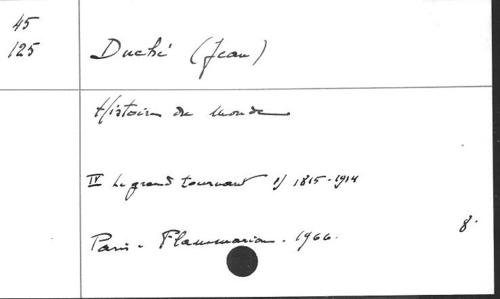 45
125
Duché (Jean)
Histoire du Monde
IV Le grand tournant 1815-1914
Paris - Flammarion - 1966.
8.